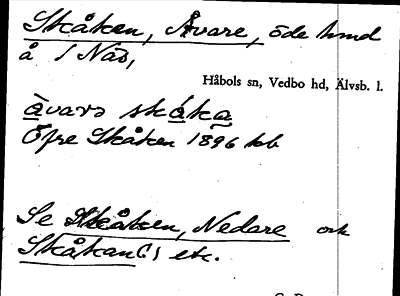 Skåken, Åvare, öde hmd
å / Näs,
Håbols sn, Vedbo hd, Älvsb. l.
àvarə skáka
Öfre Skåken 1896 kb
Se Skåken, Nedare och
Skåkan(s) etc.